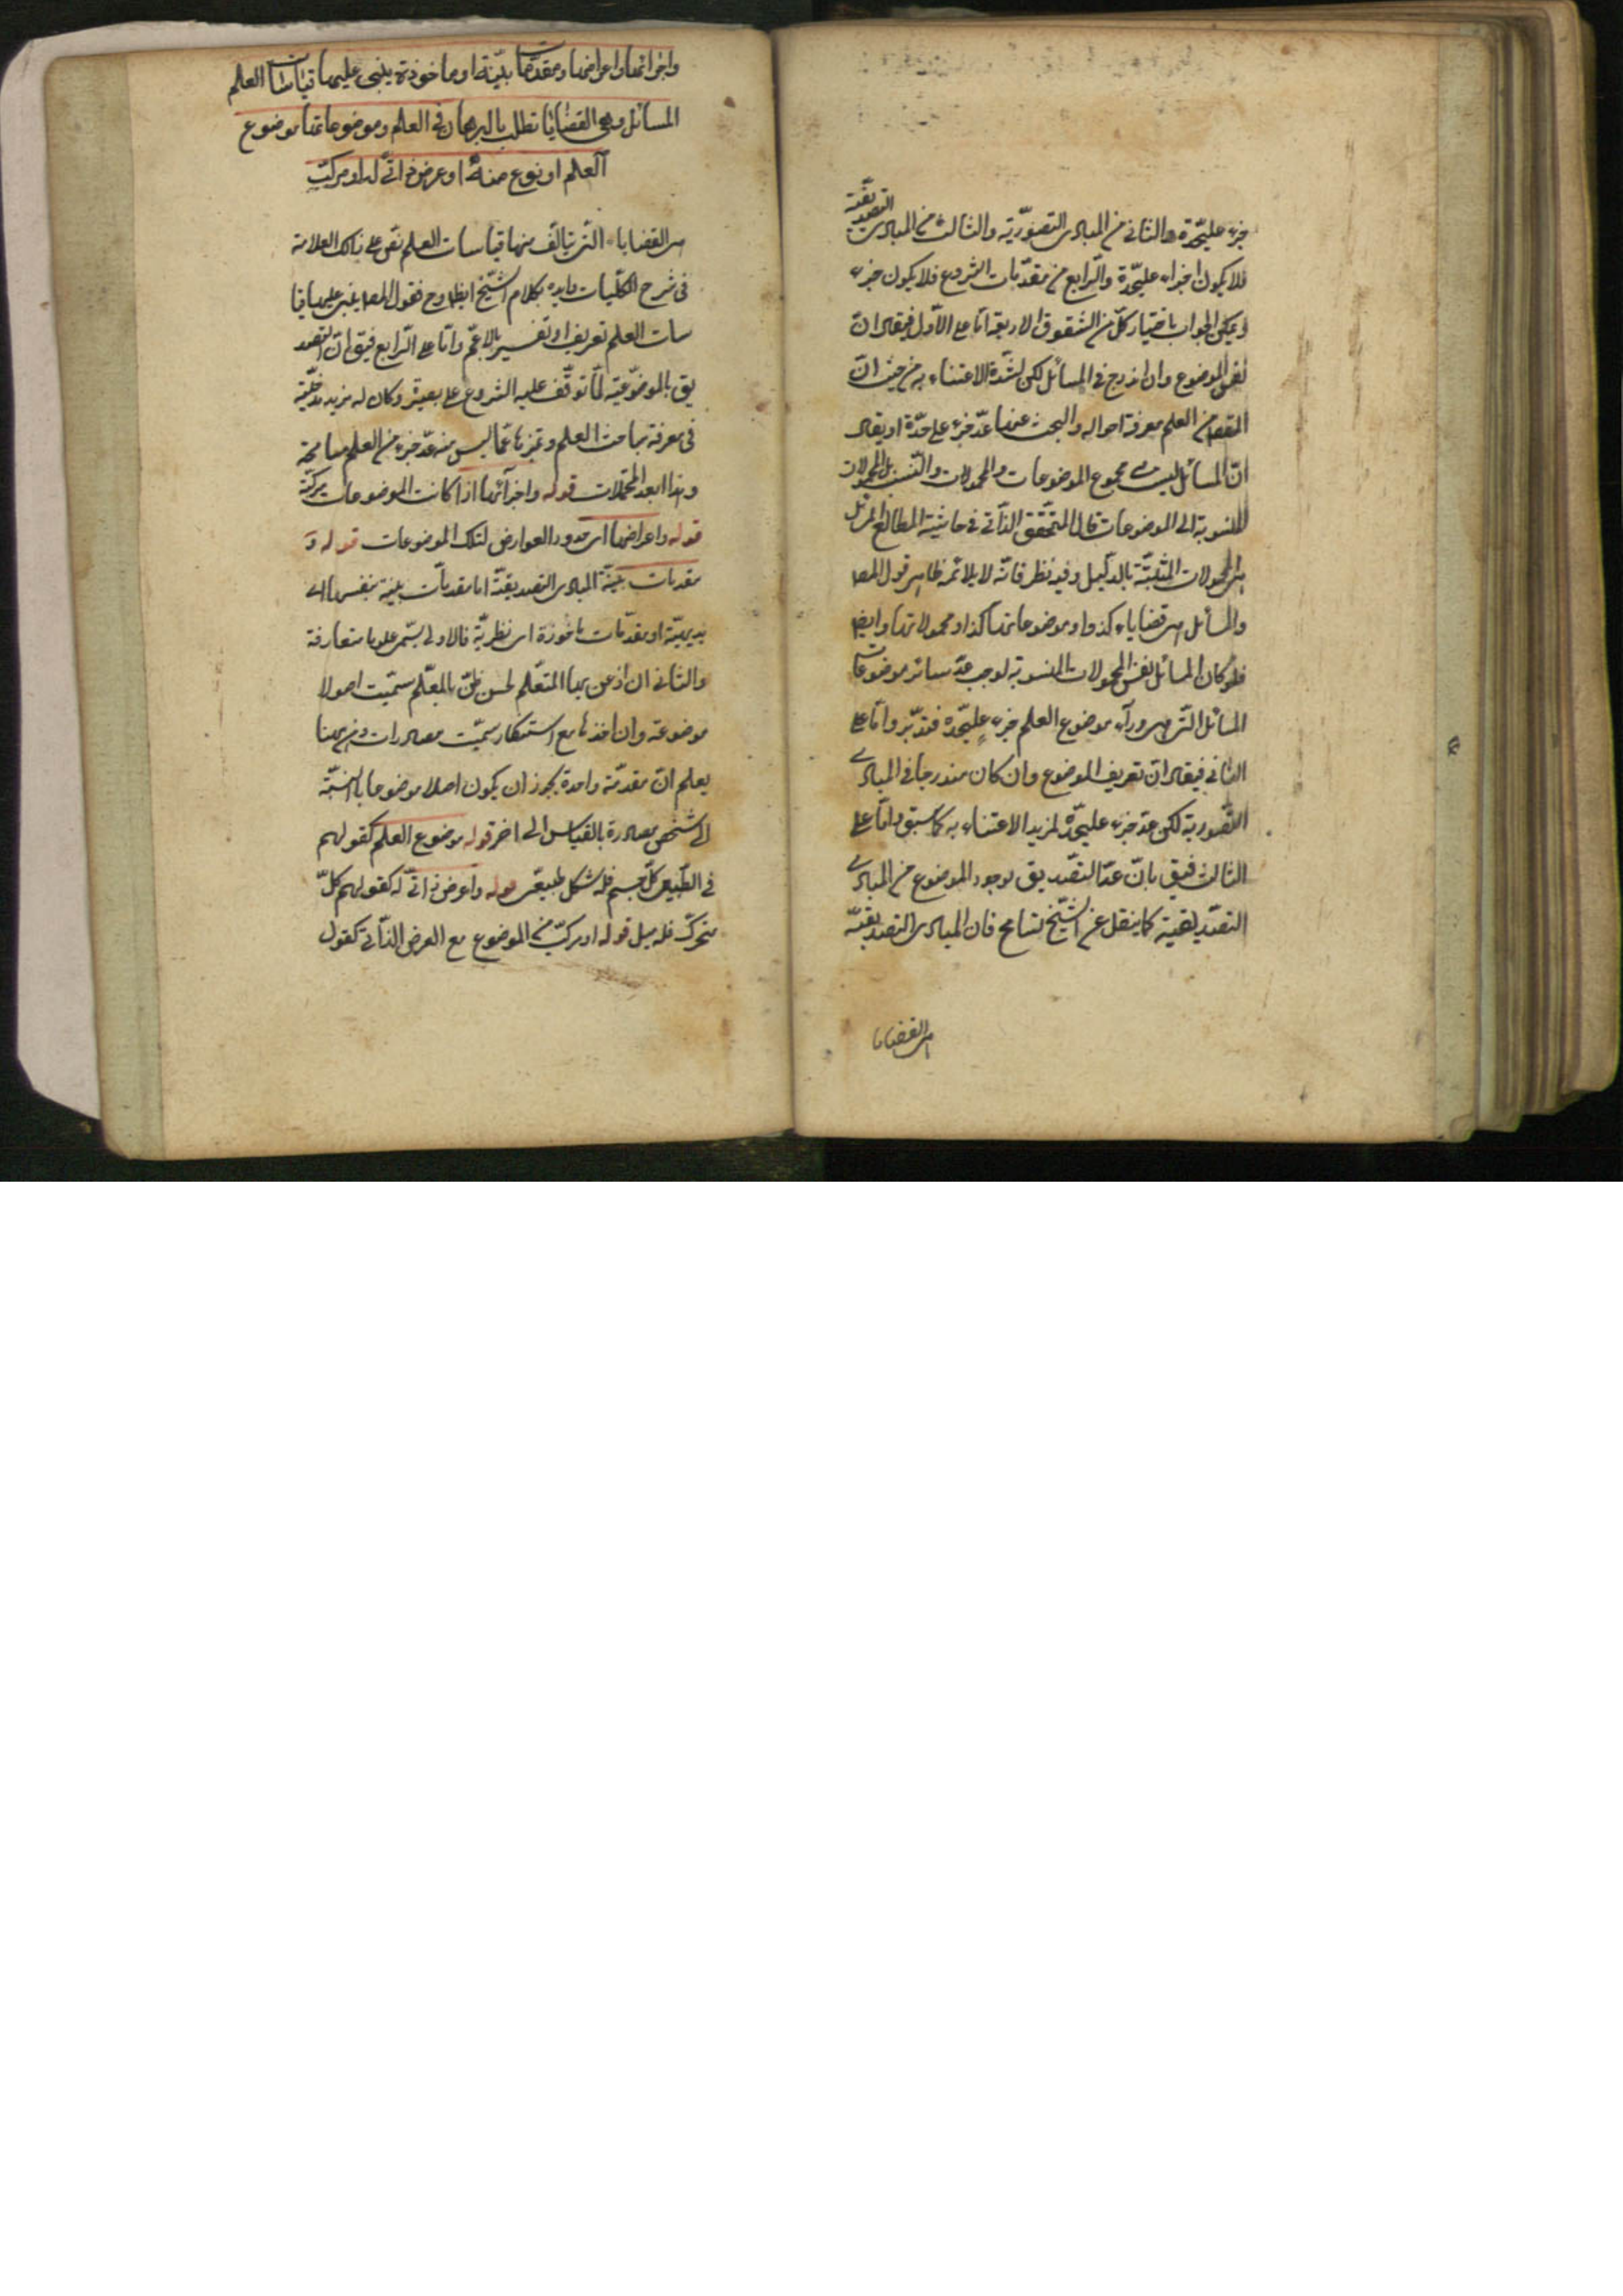 جزء عليحدة والثانى من المبادى التصورية والثالث من المبادى التصديقية
فلا يكون اجزاء عليحدة والرابع من مقدمات الشروع فلا يكون جزء
ويمكن الجواب باختيار كل من الشقوق الاربعة اما على الاول فيقال ان
نفس الموضوع وان اندرج فى المسائل لكن لشدة الاعتناء به من حيث ان
المقصد من العلم معرفة احواله والبحث عنها عد جزء على حدة او يقال
ان المسائل ليست مجموع الموضوعات والمحمولات والنسب بل المحمولات
المنسوبة الى الموضوعات قال المحقق الدوانى فى حاشية المطالع المسائل
هى المحمولات المثبتة بالدليل وفيه نظر فانه لا يلائمه ظاهر قول المصـ
والمسائل هى قضايا كذا وموضوعاتها كذا ومحمولاتها وايضا
فلو كان المسائل نفس المحمولات المنسوبة لوجب عد سائر موضوعات
المسائل التى هى وراء موضوع العلم جزء عليحدة فتدبر واما على
الثانى فيقال ان تعريف الموضوع وان كان مندرجا فى المبادى
التصورية لكن عد جزء عليحدة لمزيد الاعتناء به كما سبق واما على
الثالث فيق بان عد التصديق بوجود الموضوع من المبادى
التصديقية كما ينقل عن الشيخ تسامح فان المبادى التصديقية
هى القضايا
واجزائها واعراضها ومقدمات بينة او ماخوذة يبتنى عليها قياسات العلم
المسائل وهى القضايا تطلب بالبرهان فى العلم وموضوعاتها موضوع
العلم او نوع منه او عرض ذاتى له او مركب
هى القضايا التى يتالف منها قياسات العلم نص على ذلك العلامة
فى شرح الكليات وايده بكلام الشيخ ايضا وح فقول المصـ يبتنى عليها قيا
سات العلم تعريف او تفسير بالاعم واما على الرابع فيق ان التصد
يق بالموضوعية لما توقف عليه الشروع على بصيرة وكان له مزيد مدخلية
فى معرفة مباحث العلم وتميزها عما ليس منه عد جزء من العلم مسامحة
وهذا ابعد المحتملات قوله واجزائها اذا كانت الموضوعات مركبة
قوله واعراضها اى حدود العوارض لتلك الموضوعات قوله و
مقدمات بينة المبادى التصديقية اما مقدمات بينة بنفسها اى
بديهية او مقدمات ماخوذة اى نظرية فالاولى يسمى علوما متعارفة
والثانى ان اذعن بها المتعلم لحسن ظن بالمعلم سميت اصولا
موضوعة وان اخذها مع استنكار سميت مصادرات ومن ههنا
يعلم ان مقدمة واحدة يجوز ان يكون اصلا موضوعا بالنسبة
الى شخص مصادرة بالقياس الى اخر قوله موضوع العلم كقولهم
فى الطبيعى كل جسم فله شكل طبيعى قوله واعرض ذاتى له كقولهم كل
متحرك فله ميل قوله او مركب من الموضوع مع العرض الذاتى كقول